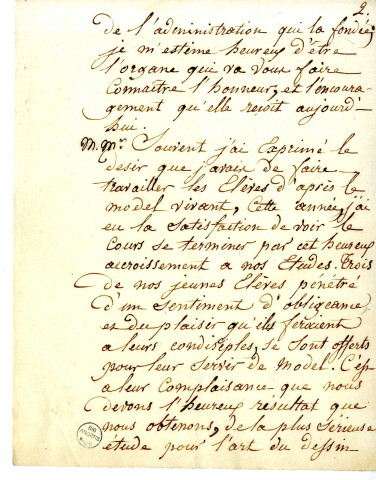 2.
de l'administration qui la fondée,
je m'estime heureux d'être
l'organe qui va vous faire
connaitre l'honneur, et l'encoura-
gement qu'elle reçoit aujourd'-
hui.
M.mrs Souvent j'ai Exprimé le
desir que j'avais de faire
travailler les Elères d'après le
model vivant, Cette année, j'ai
eu la satisfaction de voir le
Cours se terminer par cet heureux
accroissement a nos Etudes. Trois
de nos jeunes Elères pénétré
d'un sentiment d'obligeance,
et du plaisir qu'ils feraient
a leurs condisiples, se sont offerts
pour leur servir de Model. C'est
a leur Complaisance que nous
devons l'heureux résultat que
nous obtenons, de la plus sérieuse
étude pour l'art du dessin